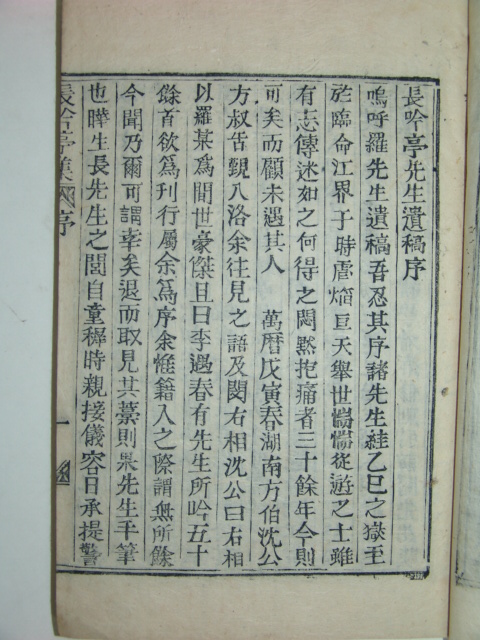 長吟亭先生遺稿序
嗚呼羅先生遺稿吾忍其序諸先生絓乙巳之獄至
於臨命江界于時虐焰亘天擧世惴惴從遊之士雖
有志傳述如之何得之悶默抱痛者三十餘年今則
可矣而顧未遇其人 萬曆戊寅春湖南方伯沈公
方叔告覲入洛余往見之語及閔右相沈公曰右相
以羅某爲間世豪傑且曰李遇春有先生所吟五十
餘首欲爲刊行屬余爲序余惟籍入之際謂無所餘
今聞乃爾可謂幸矣退而取見其藁則果先生手筆
也曄生長先生之閭自童穉時親接儀容日承提警
長吟亭集 序
一